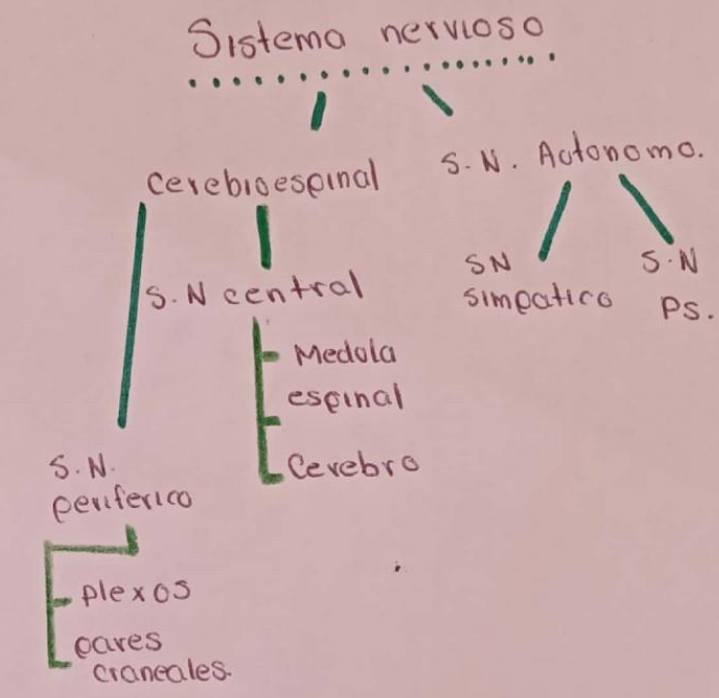 Sistema nervioso
cerebroespinal
S.N. Autonomo.
S.N central
SN
simpatico
S.N
PS.
Medula
espinal
Cerebro
S.N.
periferico
plexos
pares
craneales.